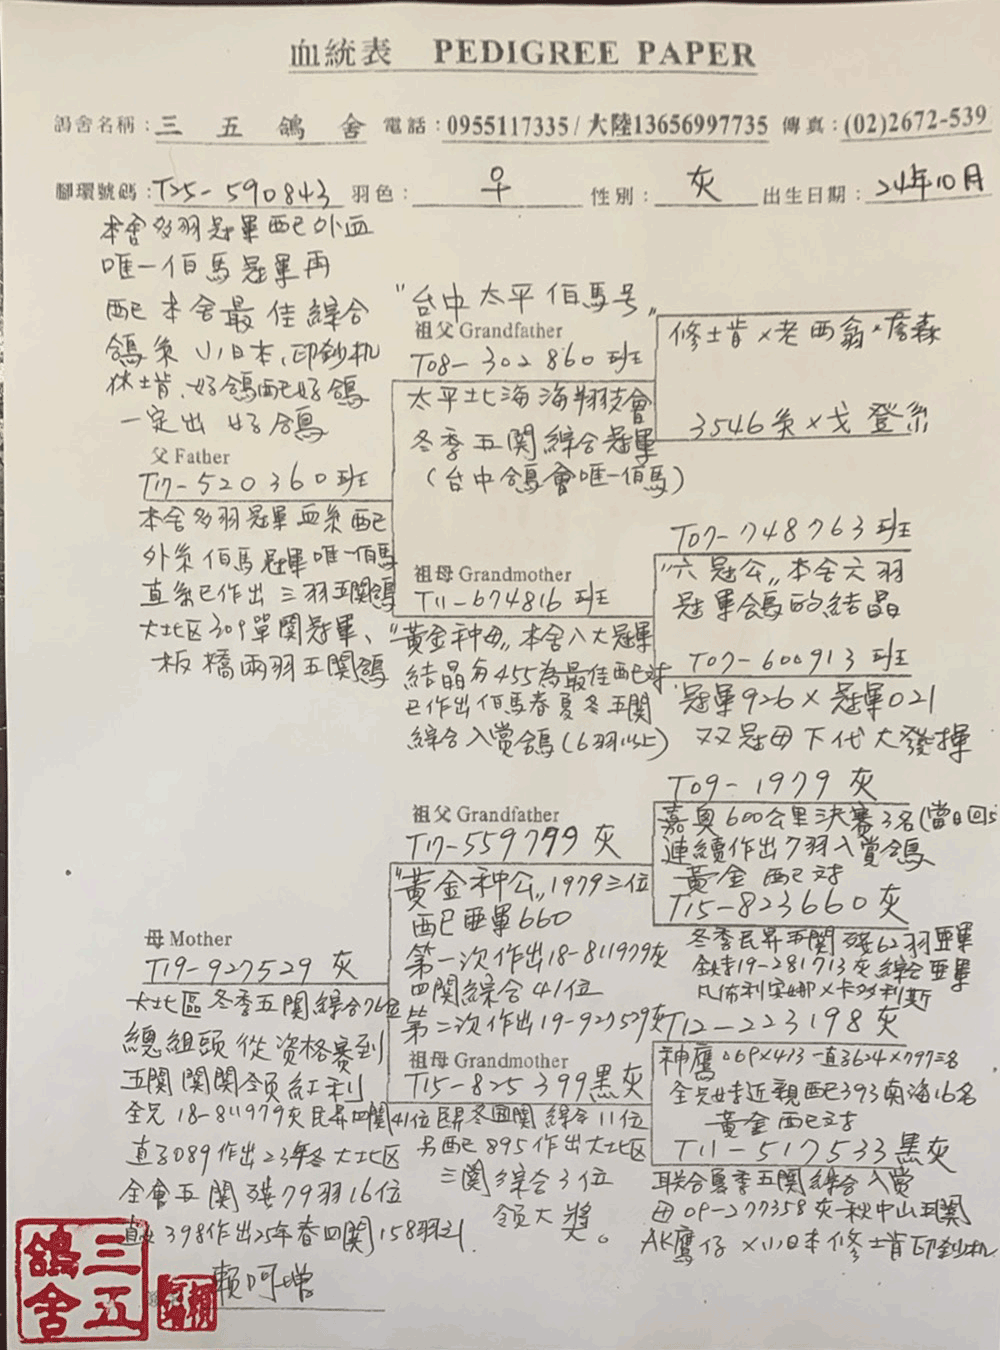 血統表 PEDIGREE PAPER
鴿舍名稱：三五鴿舍 電話：0955117335/大陸13656997735 傳真：(02)2672-539
腳環號碼：T25-590843 羽色：♀ 性別：灰 出生日期：24年10月
本舍多羽冠軍配外血
唯一佰馬冠軍再
配本舍最佳綜合
鴿系小日本、印鈔机
休士肯、好鴿配好鴿
一定出好鴿
父 Father
T17-520360 班
本舍多羽冠軍血系配
外系佰馬冠軍唯一佰馬
直系已作出三羽五関鴿
大北区309單関冠軍、
板橋兩羽五関鴿
"台中太平佰馬号"
祖父 Grandfather
T08-302860 班
太平北海海翔技會
冬季五関綜合冠軍
(台中鴿會唯一佰馬)
修士肯×老西翁×詹森
3546系×戈登系
祖母 Grandmother
T11-674816 班
"黃金种母"本舍八大冠軍
結晶与455為最佳配对
已作出佰馬春夏冬五関
綜合入賞鴿(6羽以上)
T07-748763 班
"六冠公"本舍六羽
冠軍鴿的結晶
T07-600913 班
冠軍926×冠軍021
双冠母下代大發揮
母 Mother
T19-927529 灰
大北區冬季五関綜合76位
總組頭從資格賽到
五関関関領紅利
全兄18-811979灰民昇四関41位
直子089作出23年冬大北区
全會五関殘79羽16位
直女398作出25年春四関158羽31
祖父 Grandfather
T17-559799 灰
"黃金种公"1979三位
配亜軍660
第一次作出18-811979灰
四関綜合41位
第二次作出19-927529灰
祖母 Grandmother
T15-825399 黑灰
民昇冬四関綜合11位
另配895作出大北区
三関綜合3位
領大獎。
T09-1979 灰
嘉奥600公里決賽3名(當日回
連續作出7羽入賞鴿
黃金配对
T15-823660 灰
冬季民昇五関殘62羽亜軍
全姉19-281713灰綜合亜軍
凡佈利安娜×卡多利斯
T12-223198 灰
神鷹069×413一直子624×797三名
全兄姉近親配393南海16名
黃金配对
T11-517533 黑灰
联合夏季五関綜合入賞
母09-277358灰秋中山五関
AK鷹仔×小日本修士肯印鈔机
賴阿增
三五鴿舍